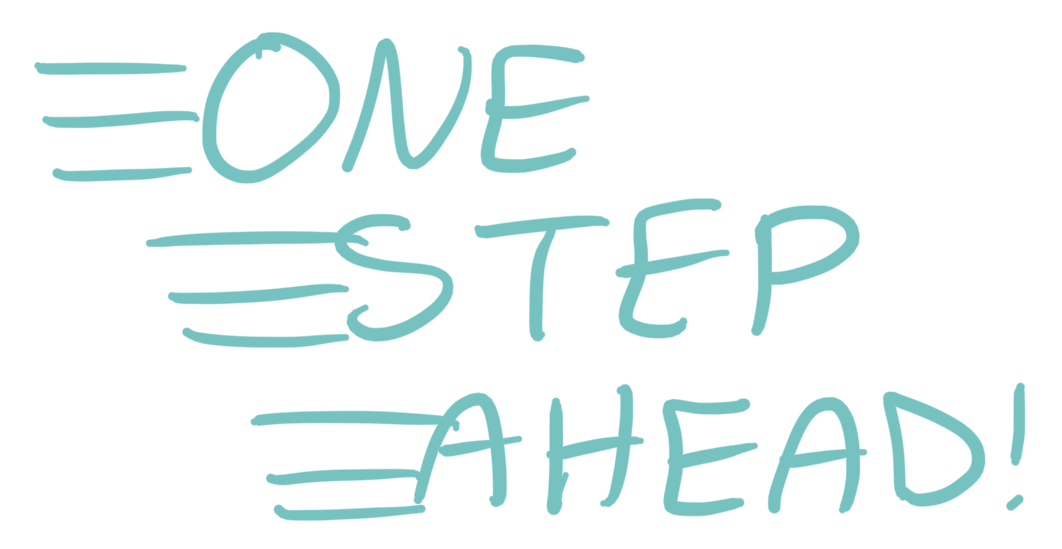 ONE
STEP
AHEAD!